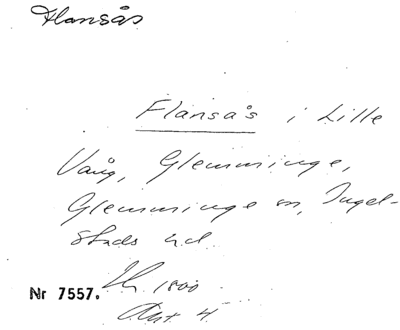 Flansås
Flansås i Lille
Vång, Glemminge,
Glemminge sn, Ingel-
stads hd.
1800
Nr 7557.
Akt 4